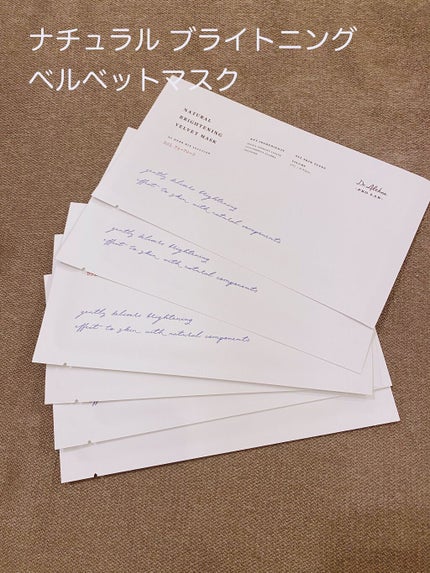 ナチュラル ブライトニング
ベルベットマスク
NATURAL
BRIGHTENING
VELVET MASK
KEY INGREDIENTS
ALL SKIN TYPES
VOLUME
PRO LAB
gently delivers brightening
effect to skin with natural components
gently delivers brightening
effect to skin with natural components
gently delivers brightening
effect to skin with natural components